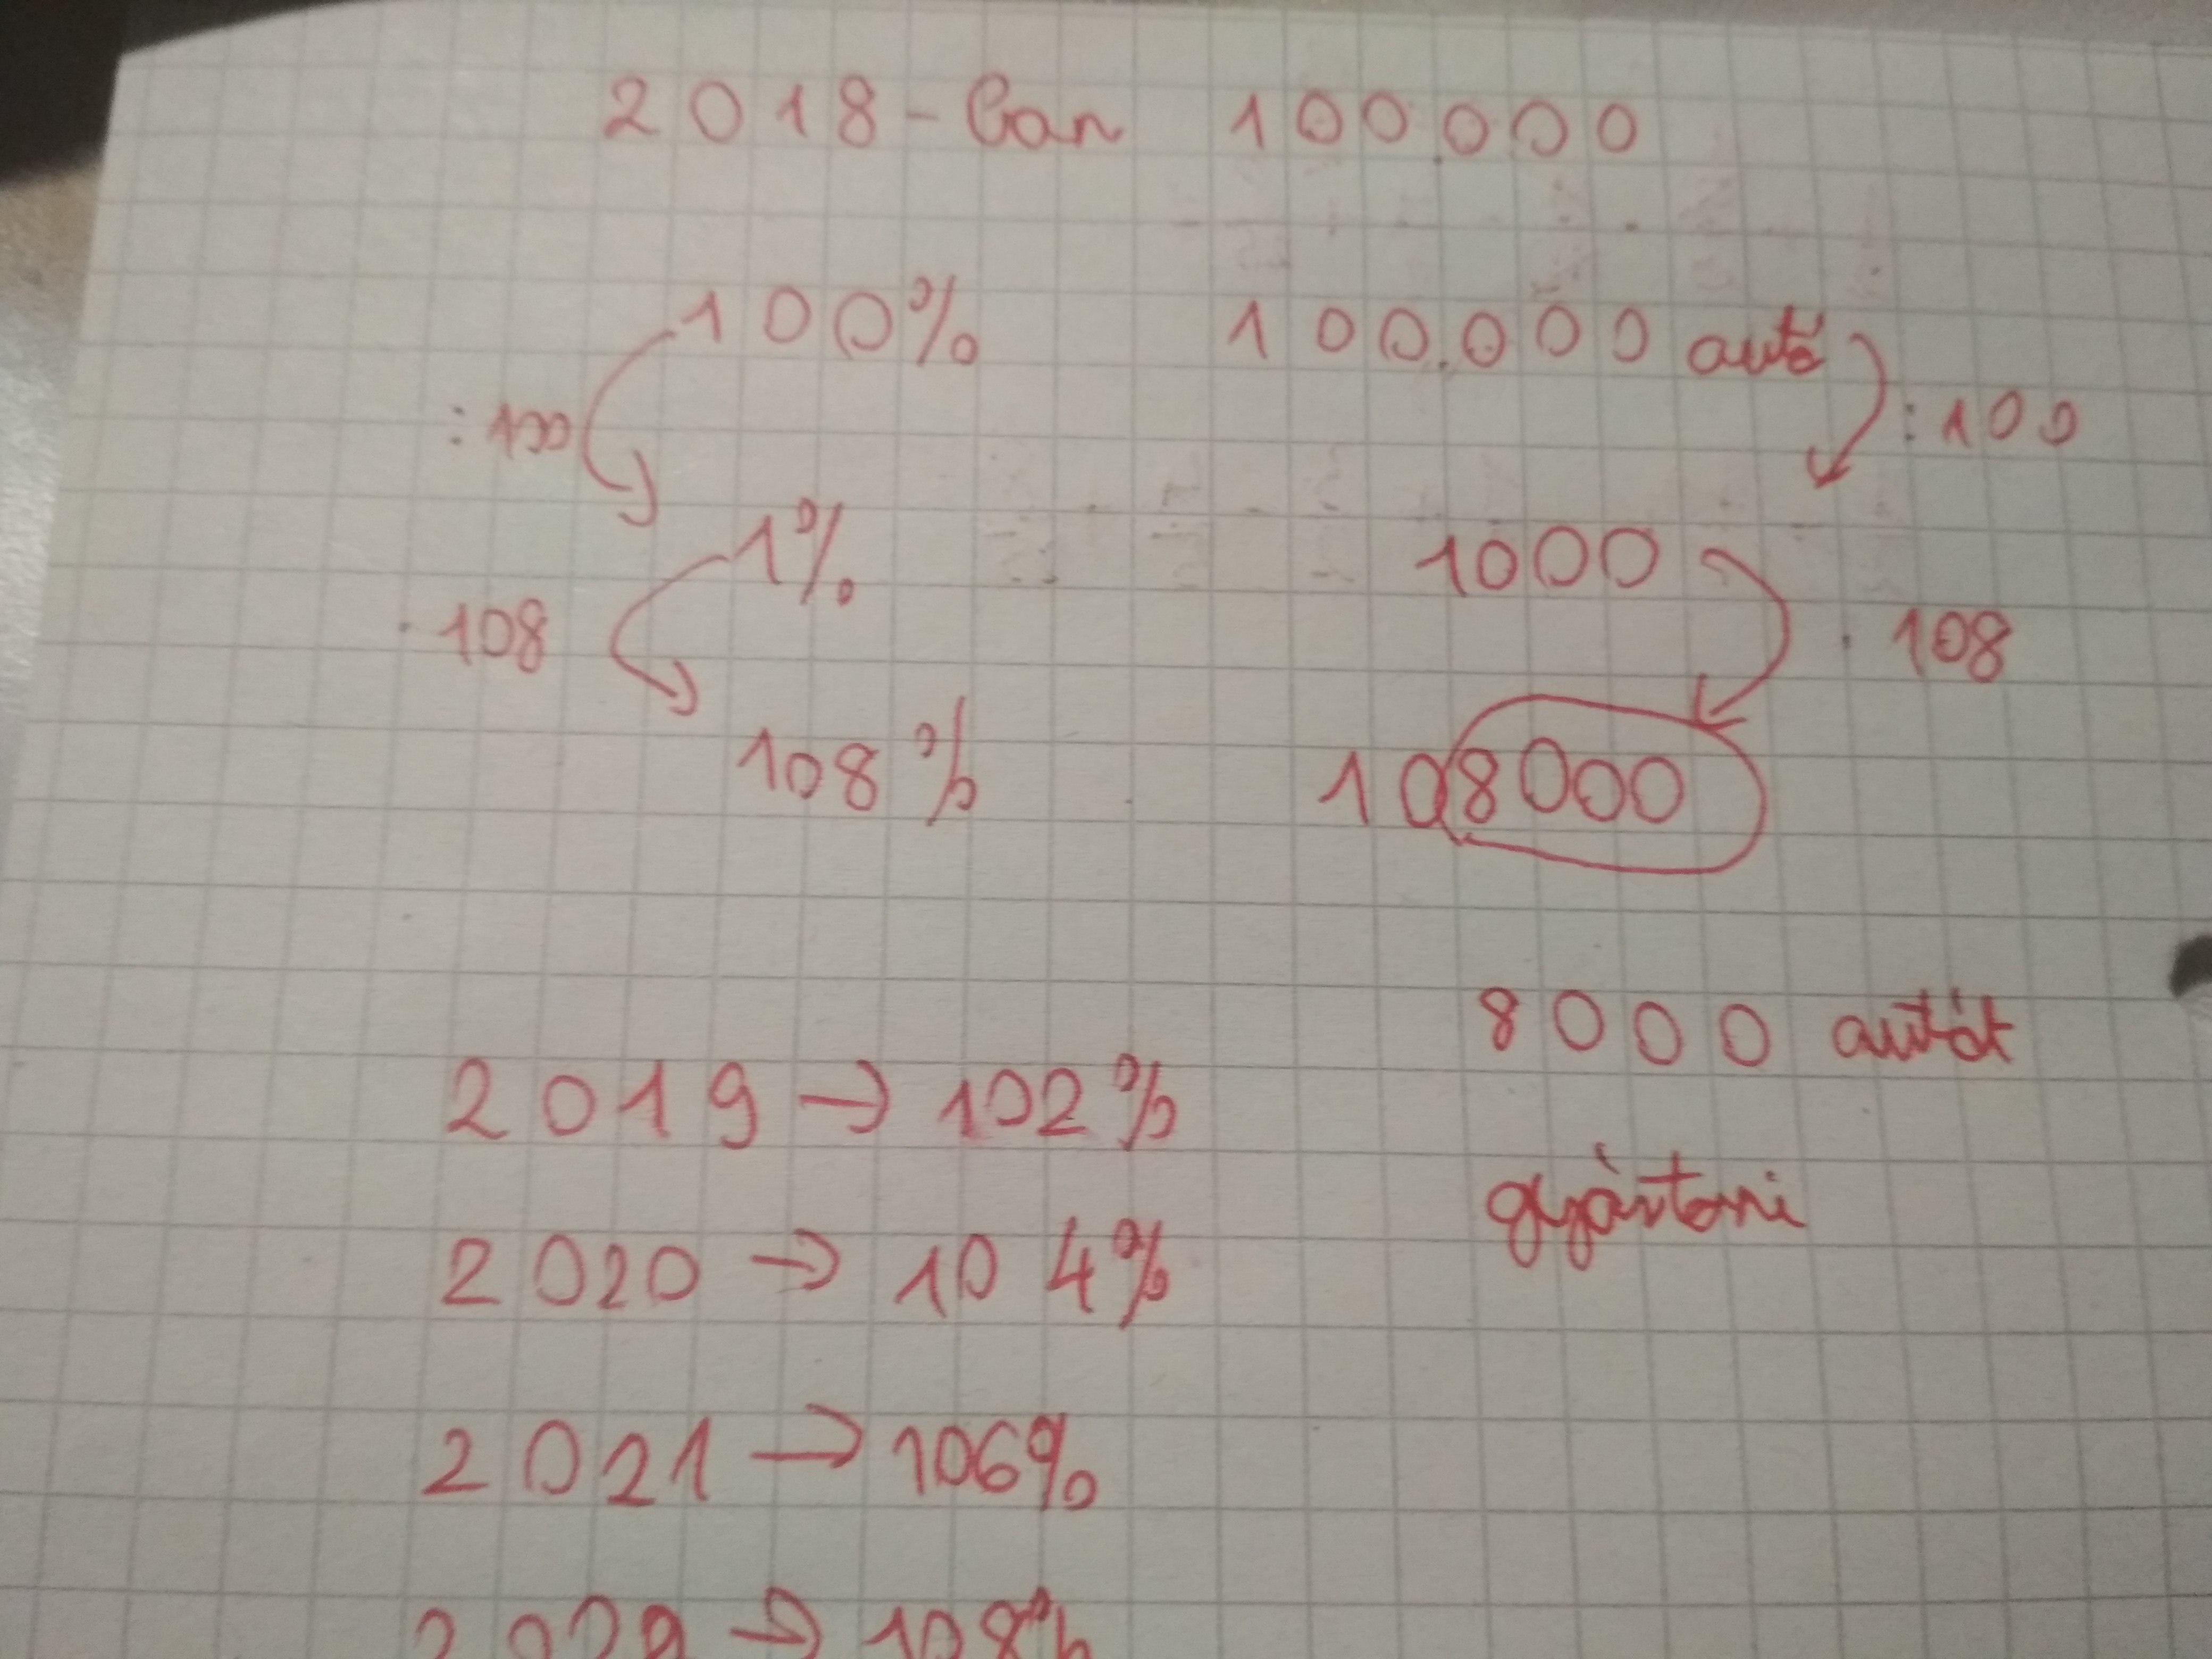 2018-ban 100.000
100% 100.000 autó
:100 :100
1% 1000
·108 ·108
108% 108000
8000 autót
2019 → 102%
gyártani
2020 → 104%
2021 → 106%
→ 108%